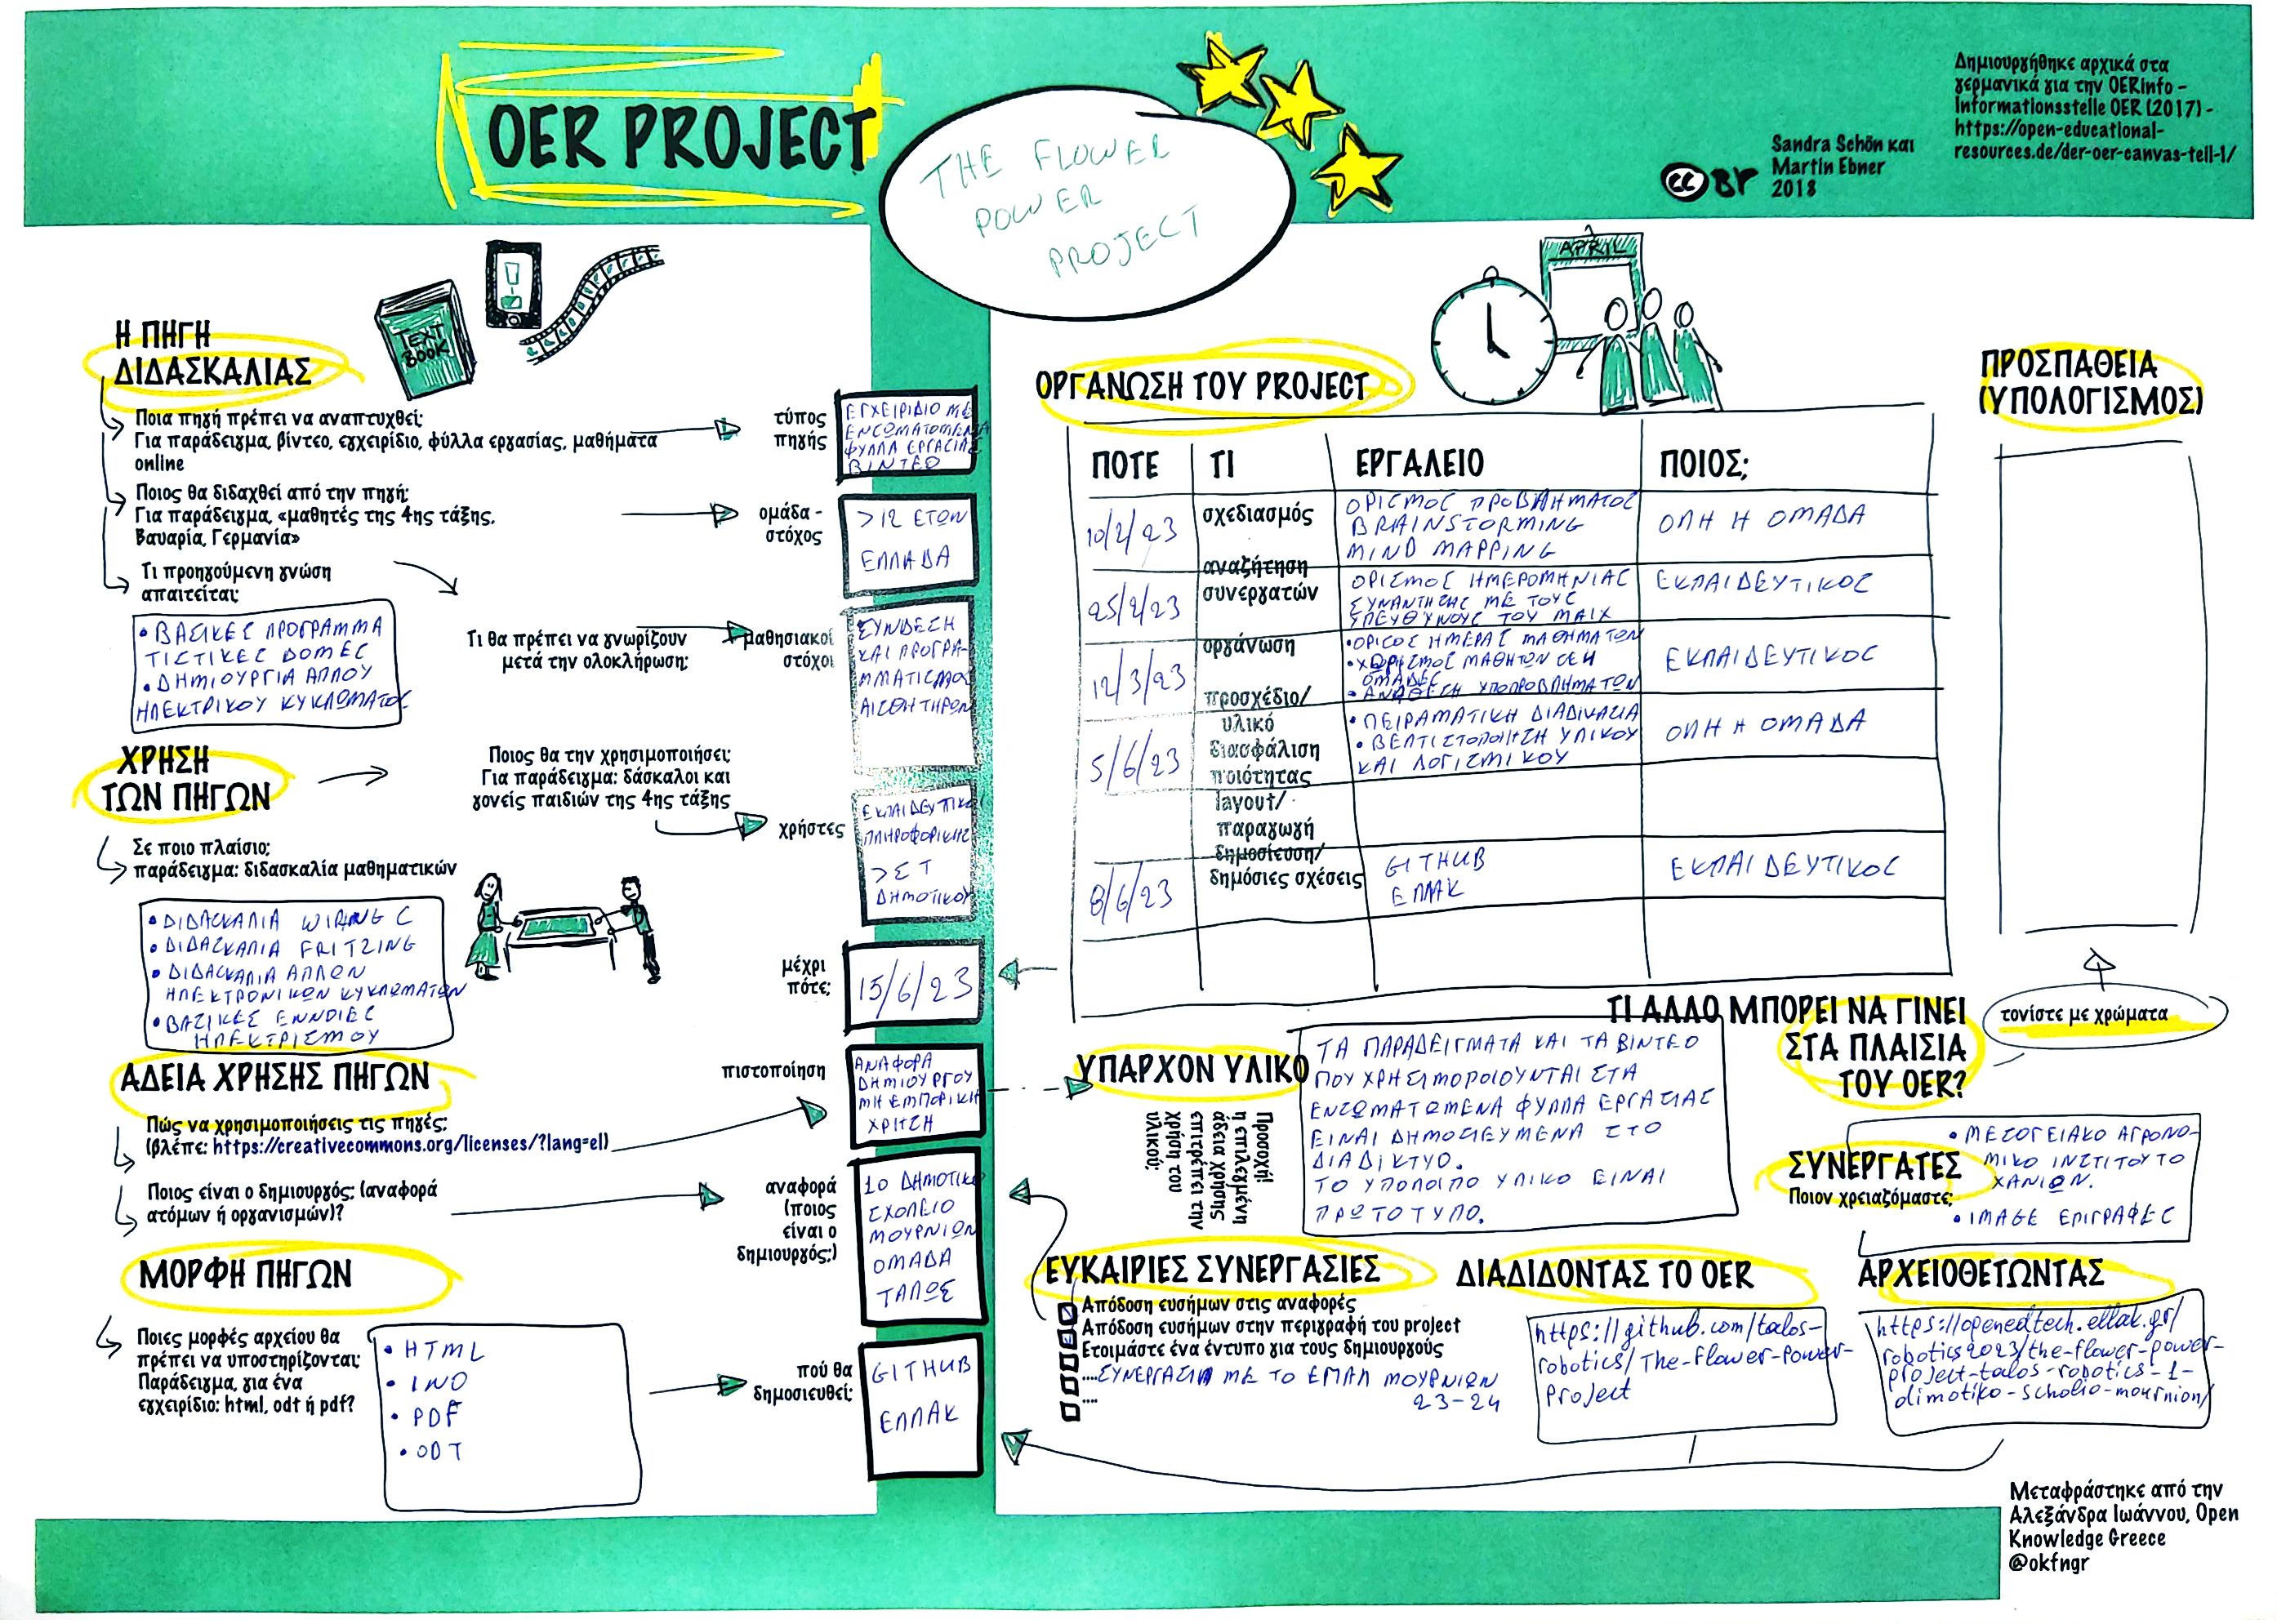 OER PROJECT
THE FLOWER
POWER
PROJECT
Sandra Schön και
Martin Ebner
2018
cc BY
Δημιουργήθηκε αρχικά στα
γερμανικά για την OERinfo -
Informationsstelle OER (2017) -
https://open-educational-
resources.de/der-oer-canvas-teil-1/
TEXT
BOOK
APRIL
Η ΠΗΓΗ
ΔΙΔΑΣΚΑΛΙΑΣ
Ποια πηγή πρέπει να αναπτυχθεί;
Για παράδειγμα, βίντεο, εγχειρίδιο, φύλλα εργασίας, μαθήματα
online
τύπος
πηγής
ΕΓΧΕΙΡΙΔΙΟ ΜΕ
ΕΝΣΩΜΑΤΩΜΕΝΑ
ΦΥΛΛΑ ΕΡΓΑΣΙΑΣ
ΒΙΝΤΕΟ
Ποιος θα διδαχθεί από την πηγή;
Για παράδειγμα, «μαθητές της 4ης τάξης,
Βαυαρία, Γερμανία»
ομάδα -
στόχος
>12 ΕΤΩΝ
ΕΛΛΑΔΑ
Τι προηγούμενη γνώση
απαιτείται;
• ΒΑΣΙΚΕΣ ΠΡΟΓΡΑΜΜΑ
ΤΙΣΤΙΚΕΣ ΔΟΜΕΣ
• ΔΗΜΙΟΥΡΓΙΑ ΑΠΛΟΥ
ΗΛΕΚΤΡΙΚΟΥ ΚΥΚΛΩΜΑΤΟΣ
Τι θα πρέπει να γνωρίζουν
μετά την ολοκλήρωση;
μαθησιακοί
στόχοι
ΣΥΝΔΕΣΗ
ΚΑΙ ΠΡΟΓΡΑ-
ΜΜΑΤΙΣΜΟΣ
ΑΙΣΘΗΤΗΡΩΝ
ΧΡΗΣΗ
ΤΩΝ ΠΗΓΩΝ
Ποιος θα την χρησιμοποιήσει;
Για παράδειγμα: δάσκαλοι και
γονείς παιδιών της 4ης τάξης
χρήστες
ΕΚΠΑΙΔΕΥΤΙΚΟΙ
ΠΛΗΡΟΦΟΡΙΚΗΣ
>ΣΤ
ΔΗΜΟΤΙΚΟΥ
Σε ποιο πλαίσιο;
παράδειγμα: διδασκαλία μαθηματικών
• ΔΙΔΑΣΚΑΛΙΑ WIRING C
• ΔΙΔΑΣΚΑΛΙΑ FRITZING
• ΔΙΔΑΣΚΑΛΙΑ ΑΠΛΩΝ
ΗΛΕΚΤΡΟΝΙΚΩΝ ΚΥΚΛΩΜΑΤΩΝ
• ΒΑΣΙΚΕΣ ΕΝΝΟΙΕΣ
ΗΛΕΚΤΡΙΣΜΟΥ
μέχρι
πότε;
15/6/23
ΑΔΕΙΑ ΧΡΗΣΗΣ ΠΗΓΩΝ
Πώς να χρησιμοποιήσεις τις πηγές;
(βλέπε: https://creativecommons.org/licenses/?lang=el)
πιστοποίηση
ΑΝΑΦΟΡΑ
ΔΗΜΙΟΥΡΓΟΥ
ΜΗ ΕΜΠΟΡΙΚΗ
ΧΡΗΣΗ
Ποιος είναι ο δημιουργός; (αναφορά
ατόμων ή οργανισμών)?
αναφορά
(ποιος
είναι ο
δημιουργός;)
1ο ΔΗΜΟΤΙΚΟ
ΣΧΟΛΕΙΟ
ΜΟΥΡΝΙΩΝ
ΟΜΑΔΑ
ΤΑΛΩΣ
ΜΟΡΦΗ ΠΗΓΩΝ
Ποιες μορφές αρχείου θα
πρέπει να υποστηρίζονται;
Παράδειγμα, για ένα
εγχειρίδιο: html, odt ή pdf?
• HTML
• INO
• PDF
• ODT
πού θα
δημοσιευθεί;
GITHUB
ΕΛΛΑΚ
ΟΡΓΑΝΩΣΗ ΤΟΥ PROJECT
ΠΟΤΕ ΤΙ ΕΡΓΑΛΕΙΟ ΠΟΙΟΣ;
10/2/23
σχεδιασμός
ΟΡΙΣΜΟΣ ΠΡΟΒΛΗΜΑΤΟΣ
BRAINSTORMING
MIND MAPPING
ΟΛΗ Η ΟΜΑΔΑ
25/2/23
αναζήτηση
συνεργατών
ΟΡΙΣΜΟΣ ΗΜΕΡΟΜΗΝΙΑΣ
ΣΥΝΑΝΤΗΣΗΣ ΜΕ ΤΟΥΣ
ΥΠΕΥΘΥΝΟΥΣ ΤΟΥ ΜΑΙΧ
ΕΚΠΑΙΔΕΥΤΙΚΟΣ
12/3/23
οργάνωση
• ΟΡΙΣΟΣ ΗΜΕΡΑΣ ΜΑΘΗΜΑΤΩΝ
• ΧΩΡΙΣΜΟΣ ΜΑΘΗΤΩΝ ΣΕ 4
ΟΜΑΔΕΣ
• ΑΝΑΘΕΣΗ ΥΠΟΠΡΟΒΛΗΜΑΤΩΝ
ΕΚΠΑΙΔΕΥΤΙΚΟΣ
5/6/23
προσχέδιο/
υλικό
διασφάλιση
ποιότητας
• ΠΕΙΡΑΜΑΤΙΚΗ ΔΙΑΔΙΚΑΣΙΑ
• ΒΕΛΤΙΣΤΟΠΟΙΗΣΗ ΥΛΙΚΟΥ
ΚΑΙ ΛΟΓΙΣΜΙΚΟΥ
ΟΛΗ Η ΟΜΑΔΑ
layout/
παραγωγή
8/6/23
δημοσίευση/
δημόσιες σχέσεις
GITHUB
ΕΛΛΑΚ
ΕΚΠΑΙΔΕΥΤΙΚΟΣ
ΠΡΟΣΠΑΘΕΙΑ
(ΥΠΟΛΟΓΙΣΜΟΣ)
τονίστε με χρώματα
ΥΠΑΡΧΟΝ ΥΛΙΚΟ
Προσοχή!
η επιλεγμένη
άδεια χρήσης
επιτρέπει την
χρήση του
υλικού;
ΤΑ ΠΑΡΑΔΕΙΓΜΑΤΑ ΚΑΙ ΤΑ ΒΙΝΤΕΟ
ΠΟΥ ΧΡΗΣΙΜΟΠΟΙΟΥΝΤΑΙ ΣΤΑ
ΕΝΣΩΜΑΤΩΜΕΝΑ ΦΥΛΛΑ ΕΡΓΑΣΙΑΣ
ΕΙΝΑΙ ΔΗΜΟΣΙΕΥΜΕΝΑ ΣΤΟ
ΔΙΑΔΙΚΤΥΟ.
ΤΟ ΥΠΟΛΟΙΠΟ ΥΛΙΚΟ ΕΙΝΑΙ
ΠΡΩΤΟΤΥΠΟ.
ΤΙ ΑΛΛΟ ΜΠΟΡΕΙ ΝΑ ΓΙΝΕΙ
ΣΤΑ ΠΛΑΙΣΙΑ
ΤΟΥ OER?
ΣΥΝΕΡΓΑΤΕΣ
Ποιον χρειαζόμαστε;
• ΜΕΣΟΓΕΙΑΚΟ ΑΓΡΟΝΟ-
ΜΙΚΟ ΙΝΣΤΙΤΟΥΤΟ
ΧΑΝΙΩΝ.
• IMAGE ΕΠΙΓΡΑΦΕΣ
ΕΥΚΑΙΡΙΕΣ ΣΥΝΕΡΓΑΣΙΕΣ
Απόδοση ευσήμων στις αναφορές
Απόδοση ευσήμων στην περιγραφή του project
Ετοιμάστε ένα έντυπο για τους δημιουργούς
....ΣΥΝΕΡΓΑΣΙΑ ΜΕ ΤΟ ΕΠΑΛ ΜΟΥΡΝΙΩΝ
23-24
....
ΔΙΑΔΙΔΟΝΤΑΣ ΤΟ OER
https://github.com/talos-
robotics/The-Flower-Power-
Project
ΑΡΧΕΙΟΘΕΤΩΝΤΑΣ
https://openedtech.ellak.gr/
robotics2023/the-flower-power-
project-talos-robotics-1-
dimotiko-scholio-mournion/
Μεταφράστηκε από την
Αλεξάνδρα Ιωάννου, Open
Knowledge Greece
@okfngr